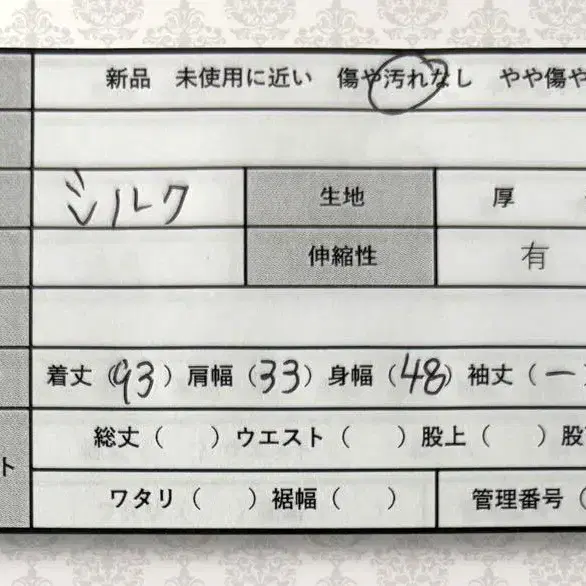 新品 未使用に近い 傷や汚れなし やや傷や
シルク 生地 厚
伸縮性 有
着丈（93）肩幅（33）身幅（48）袖丈（ー
総丈（ ）ウエスト（ ）股上（ ）股
ト
ワタリ（ ）裾幅（ ） 管理番号（